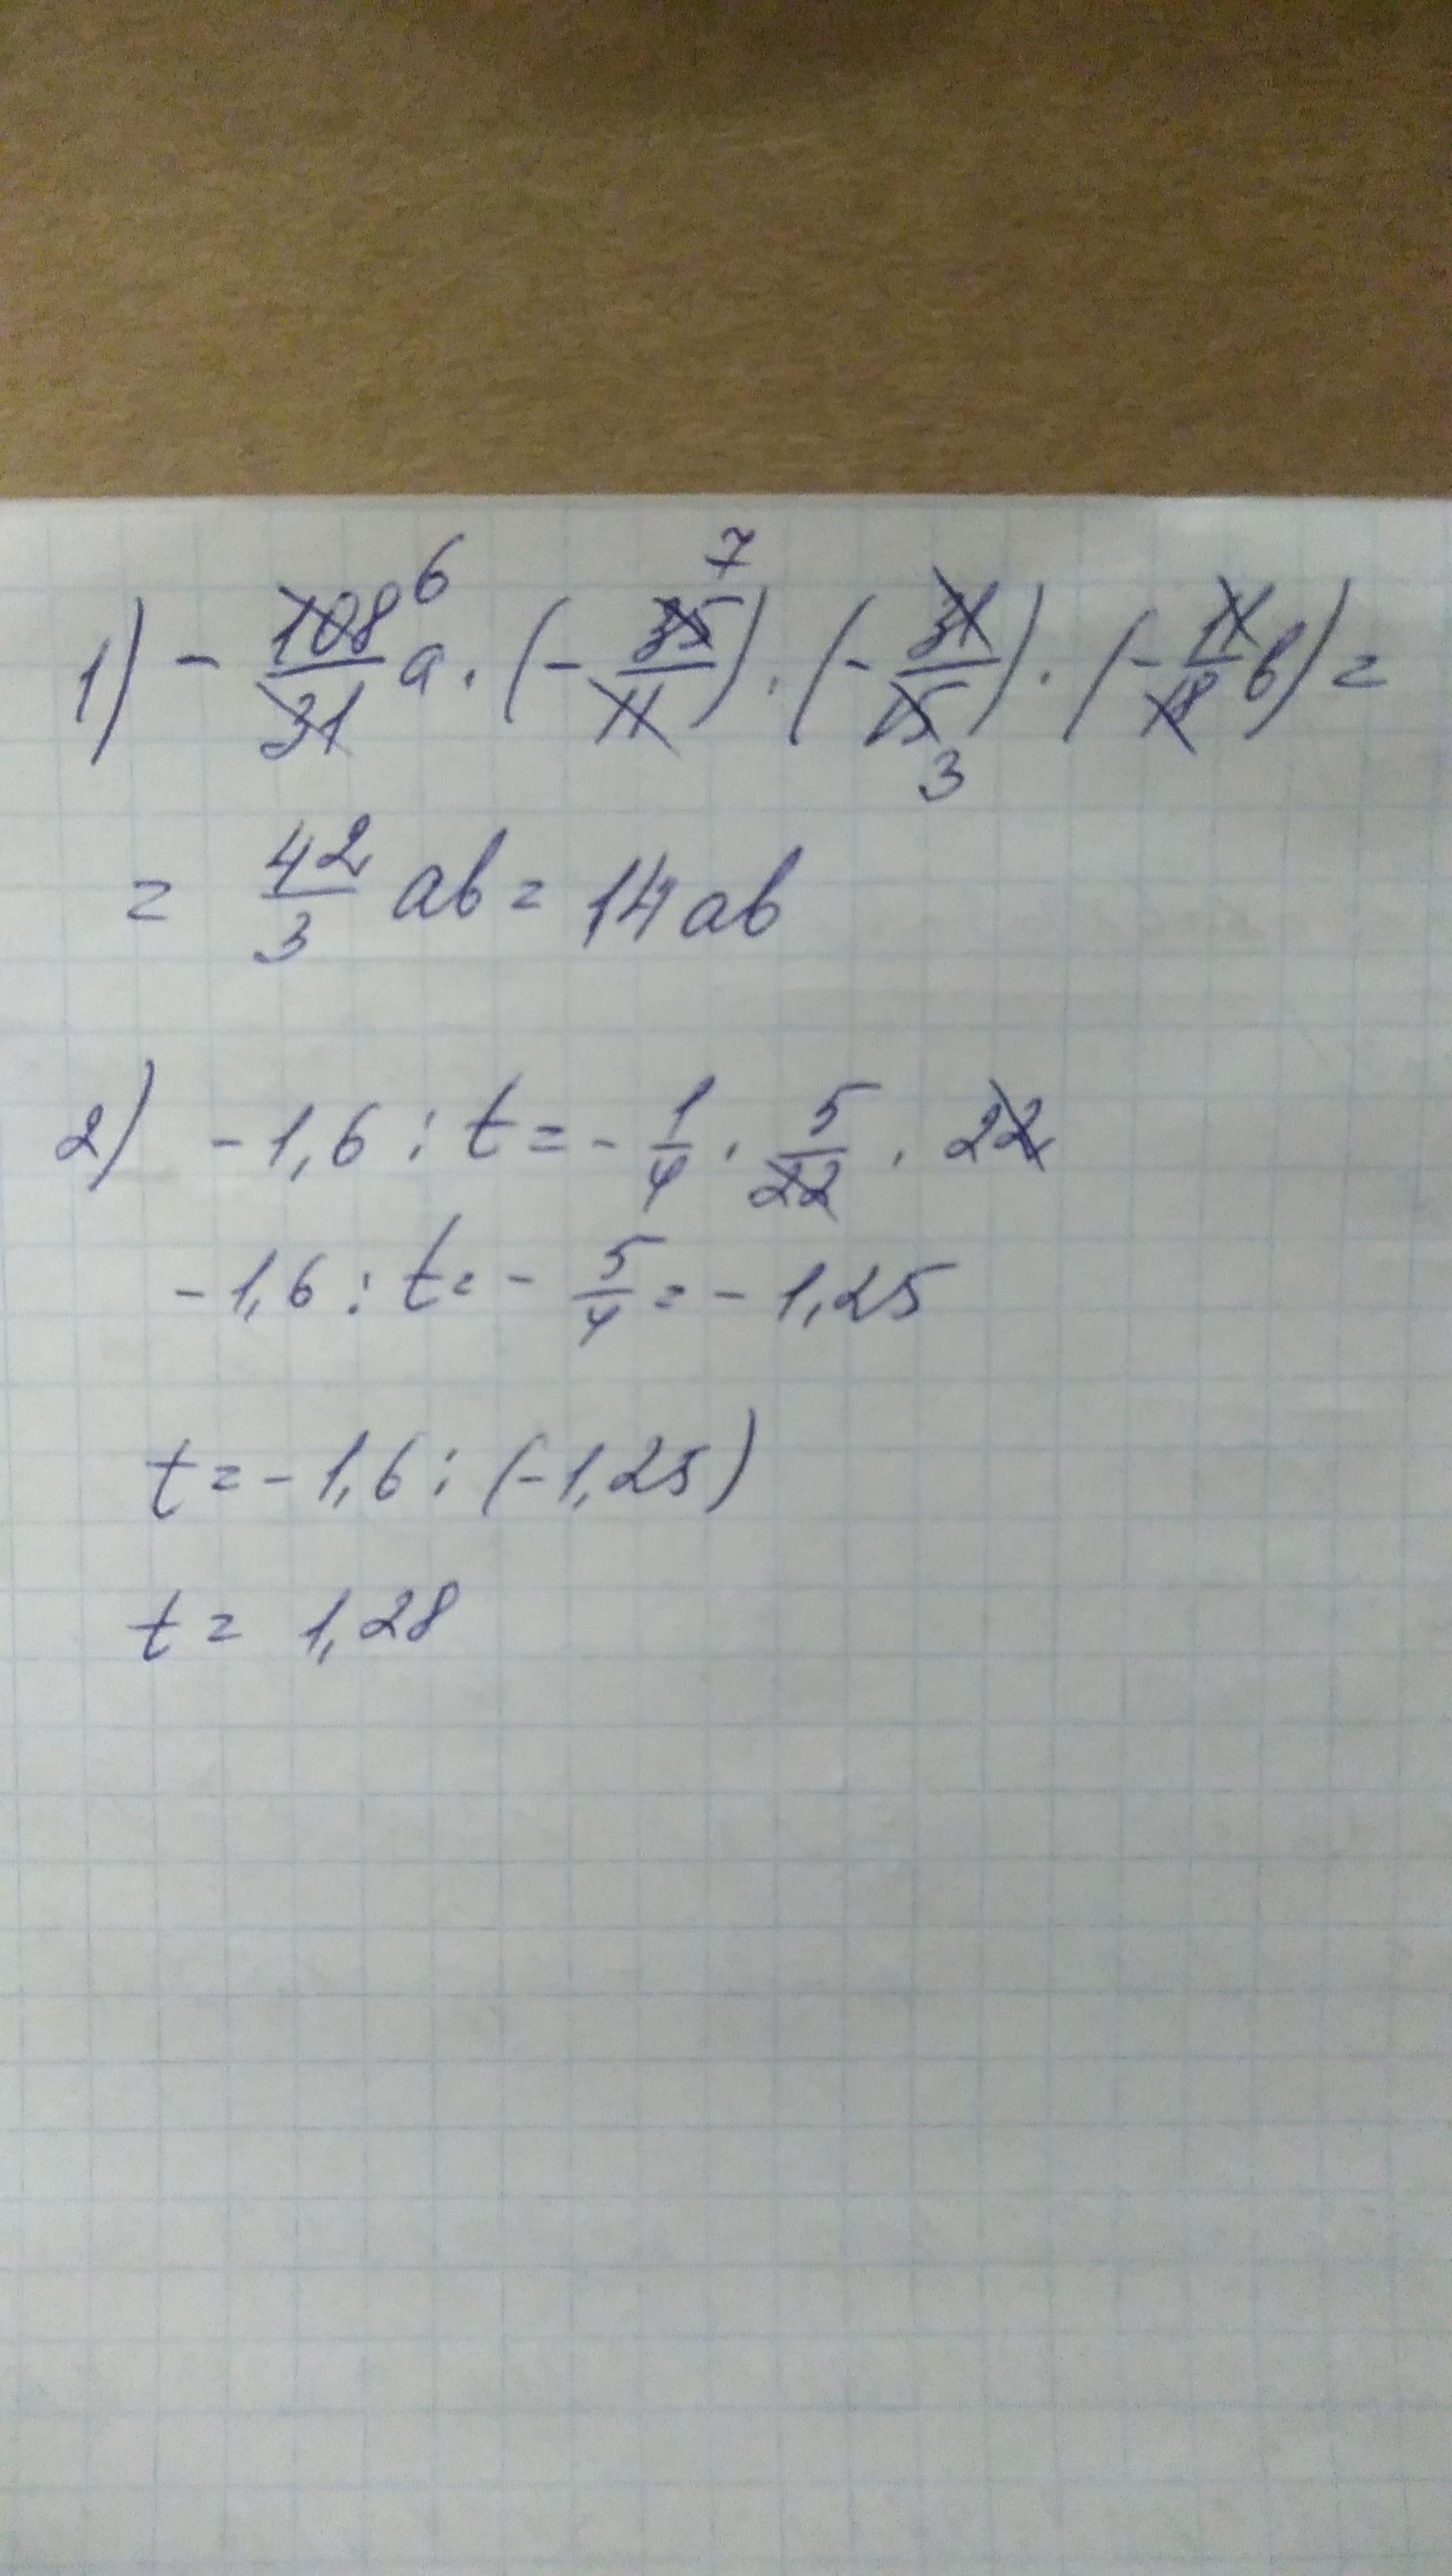 1) - 108/31 6 a · (- 35/11 7) · (- 31/15 3) · (- 11/18 b) =
= 42/3 ab = 14 ab
2) - 1,6 : t = - 1/4 · 5/22 · 22
- 1,6 : t = - 5/4 = - 1,25
t = - 1,6 : (- 1,25)
t = 1,28